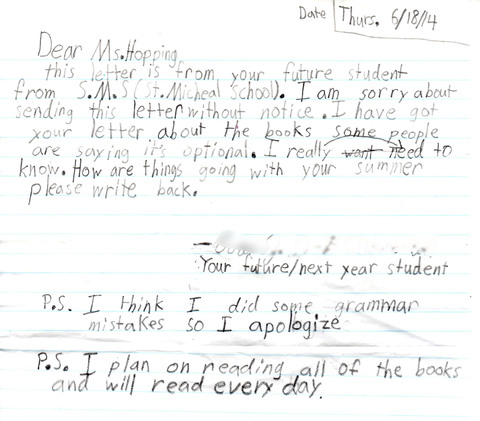 Date Thurs. 6/18/14
Dear Ms.Hopping
this letter is from your future student
from S.M.S (St.Micheal School). I am sorry about
sending this letter without notice. I have got
your letter about the books some people
are saying it's optional. I really want need to
know. How are things going with your summer
please write back.
Your future/next year student
P.S. I think I did some grammar
mistakes so I apologize
P.S. I plan on reading all of the books
and will read every day.